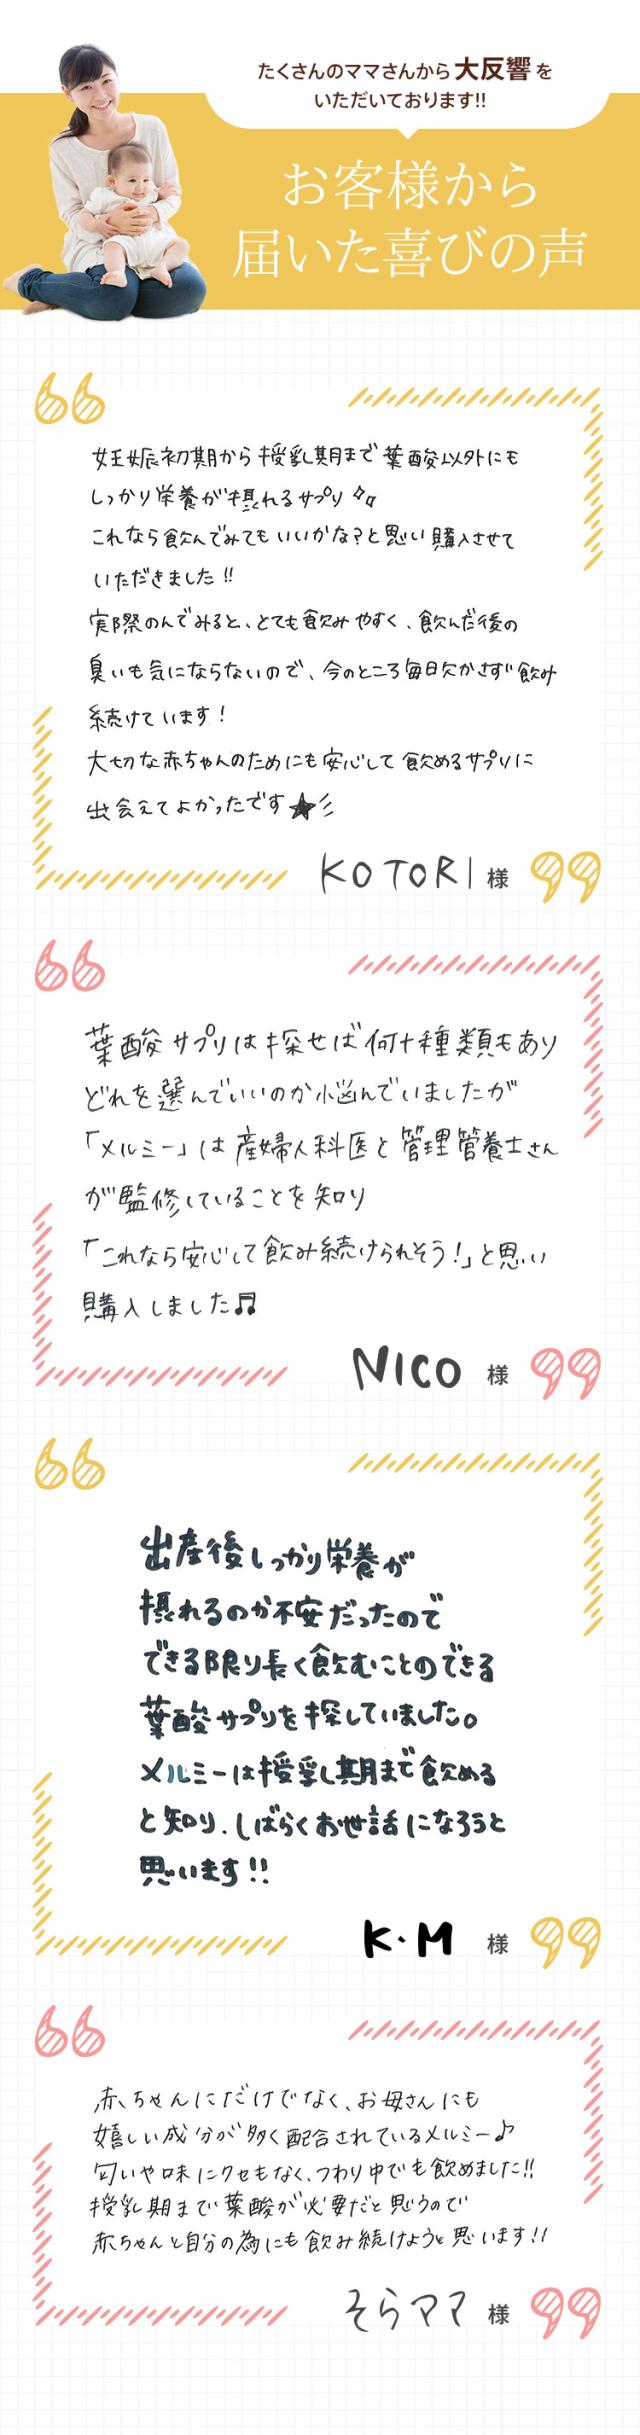 たくさんのママさんから大反響を
いただいております!!
お客様から
届いた喜びの声
妊娠初期から授乳期まで葉酸以外にも
しっかり栄養が摂れるサプリ
これなら飲んでみてもいいかな?と思い購入させて
いただきました!!
実際のんでみると、とても飲みやすく、飲んだ後の
臭いも気にならないので、今のところ毎日欠かさず飲み
続けています!
大切な赤ちゃんのためにも安心して飲めるサプリに
出会えてよかったです★
KOTORI様
葉酸サプリは探せば何十種類もあり
どれを選んでいいのか悩んでいましたが
「メルミー」は産婦人科医と管理管養士さん
が監修していることを知り
「これなら安心して飲み続けられそう!」と思い
購入しました♫
NICO 様
出産後しっかり栄養が
摂れるのか不安だったので
できる限り長く飲むことのできる
葉酸サプリを探していました。
メルミーは授乳期まで飲める
と知り、しばらくお世話になろうと
思います!!
K・M 様
赤ちゃんにだけでなく、お母さんにも
嬉しい成分が多く配合されているメルミー♪
匂いや味にクセもなく、つわり中でも飲めました!!
授乳期まで葉酸が必要だと思うので
赤ちゃんと自分の為にも飲み続けようと思います!!
そらママ 様